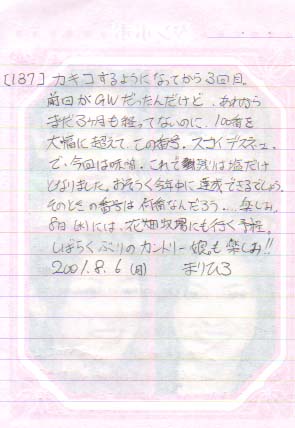 [137] カキコするようになってから3回目。
前回がGWだったんだけど、あれから
まだ3ヶ月も経ってないのに、100番を
大幅に超えて、この番号。スゴイデスネェ。
で、今回は味噌。これで残りは塩だけ
となりました。おそらく今年中に達成できるでしょう。
そのときの番号は何番なんだろう…。楽しみ。
8日(水)には、花畑牧場にも行く予定。
しばらくぶりのカントリー娘。も楽しみ!!
2001.8.6(月) まりひろ